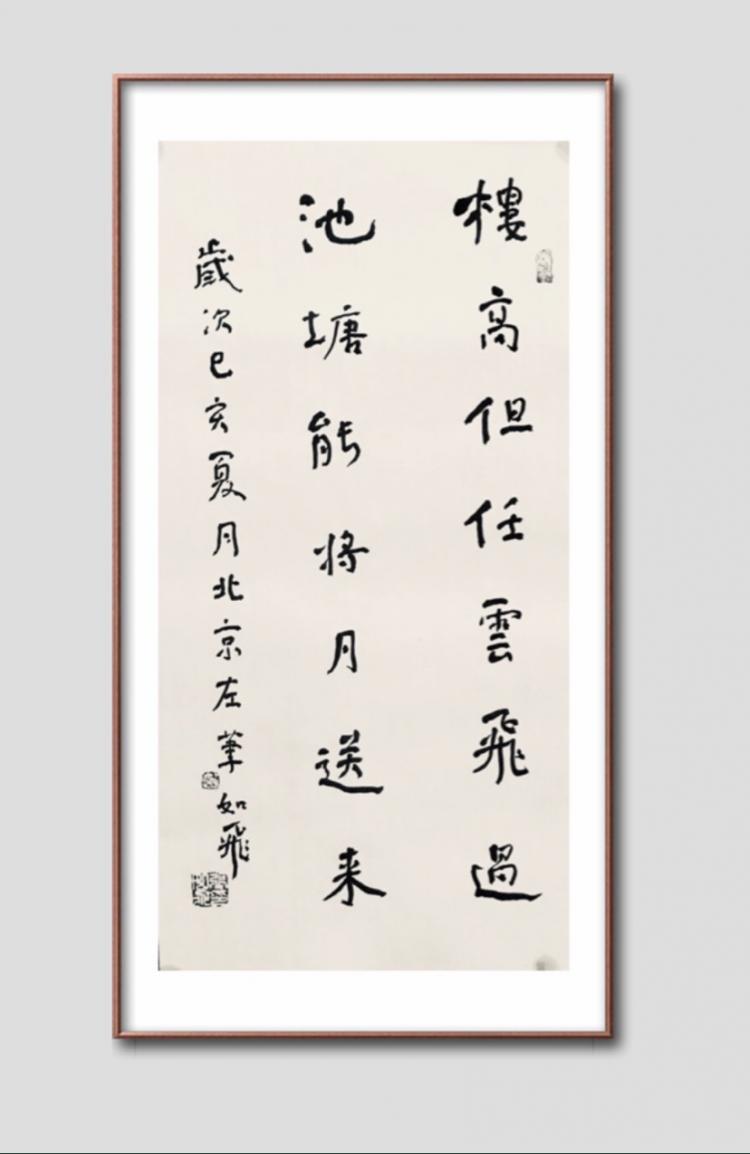 樓高但任雲飛過
池塘能将月送来
歲次己亥夏月北京左笔如飛